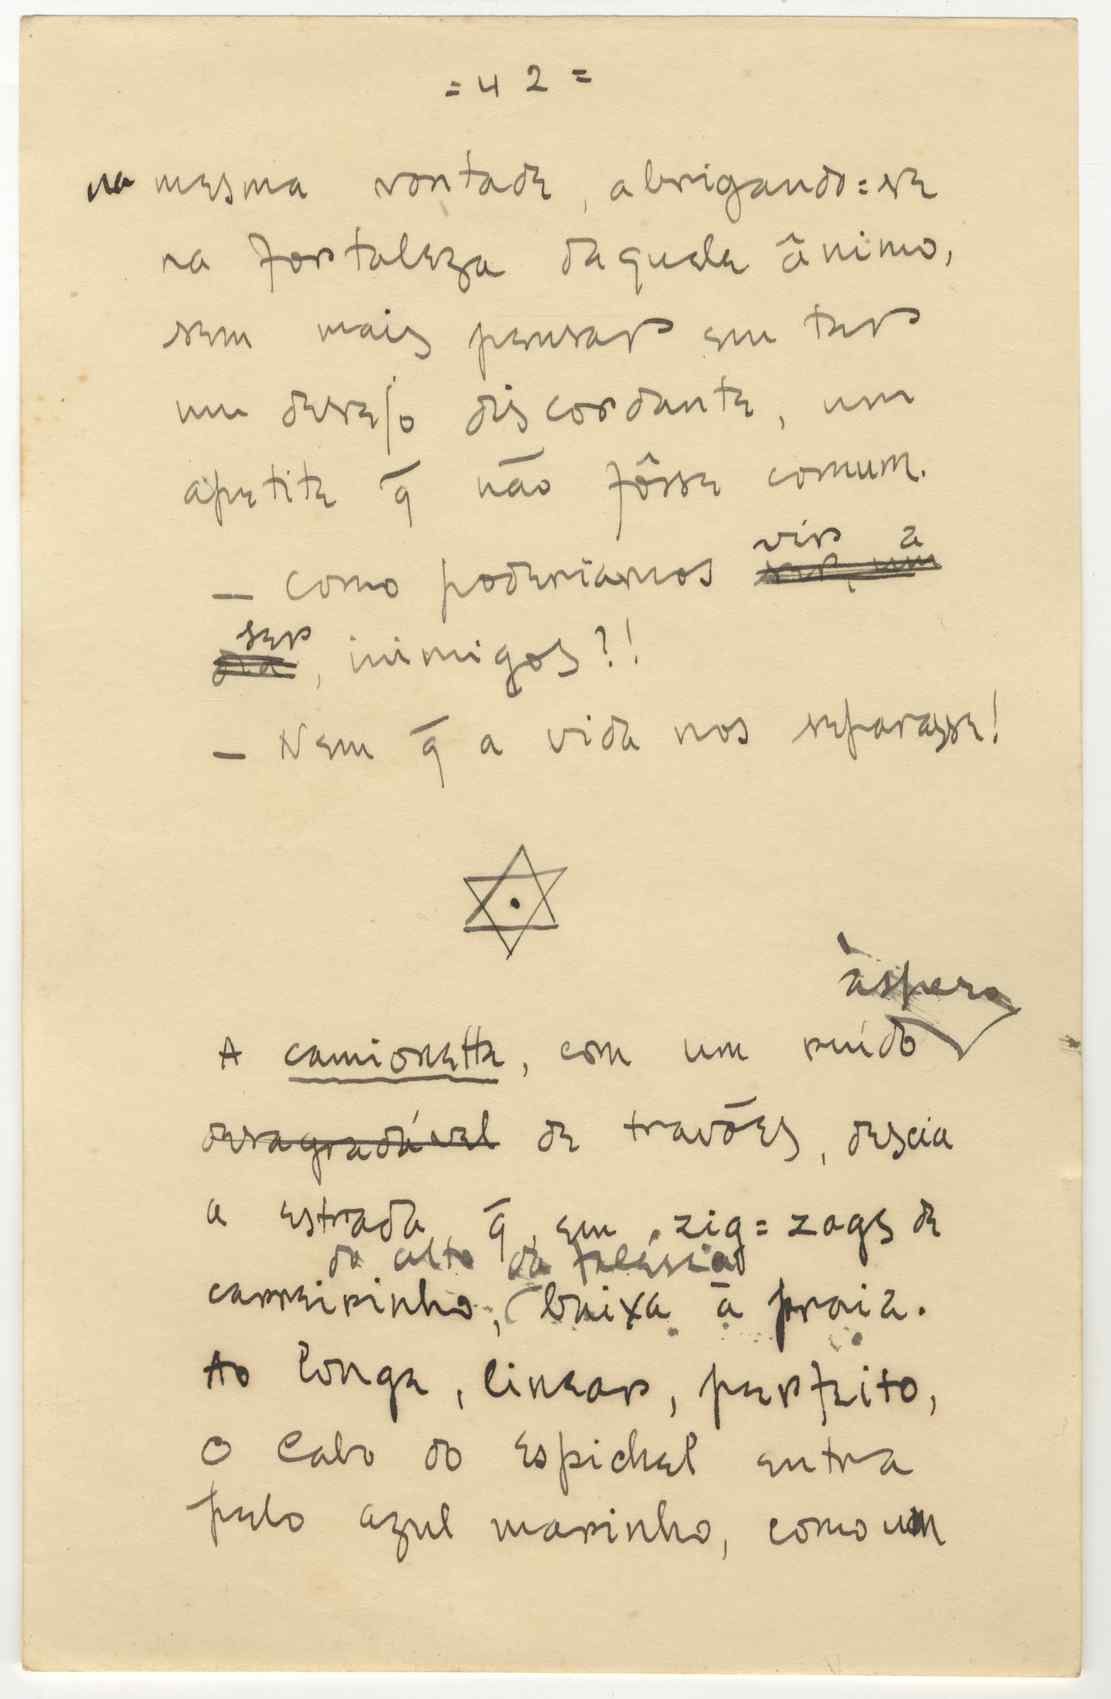 = 42 =
na mesma vontade, abrigando=se
na fortaleza daquele ânimo,
sem mais pensar em ter
um desejo discordante, um
apetite q̄ não fôsse comum.
vir a
— Como poderiamos
ser
, inimigos?!
— Nem q̄ a vida nos separasse!
àspero
A camionette, com um ruído
desagradável de travões, descia
a estrada q̄, em zig=zags de
do alto da falésia
carreirinho, baixa à praia.
Ao longe, linear, perfeito,
O Cabo do Espichel entra
pelo azul marinho, como um